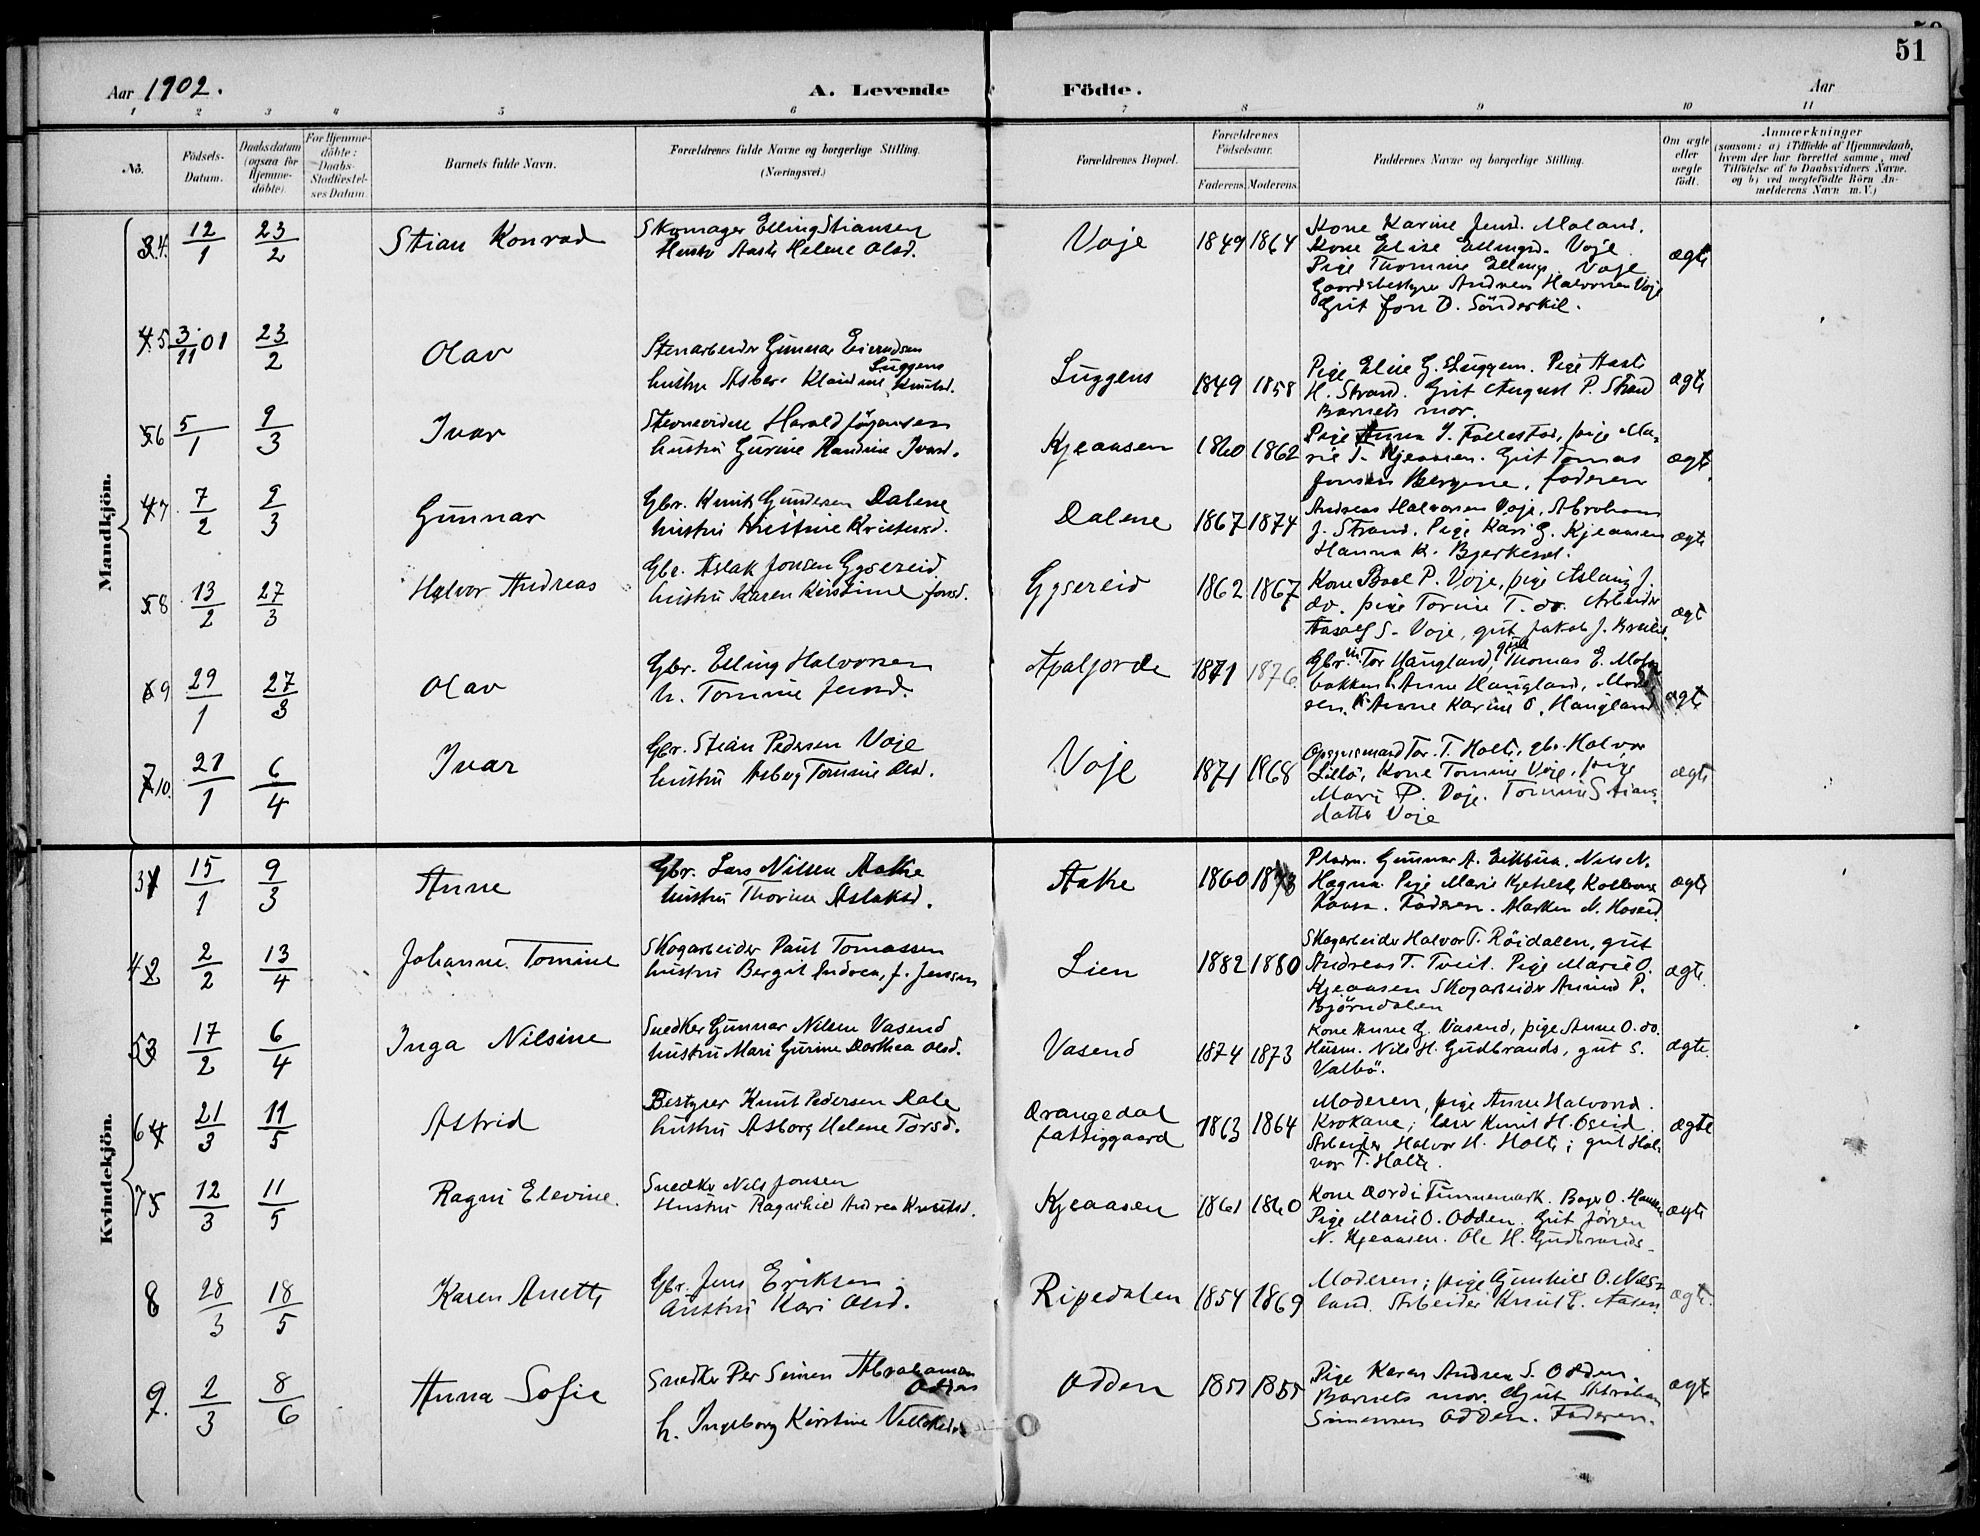 51
Aar 1902.
A. Levende Födte.
Aar
1 2 3 4 5 6 7 8 9 10 11
No.
Födsels-Datum.
Daabsdatum (ogsaa for Hjemme-döbte).
For Hjemme-döbte: Daabs-Stadfæstel-ses Datum.
Barnets fulde Navn.
Forældrenes fulde Navne og borgerlige Stilling.
(Næringsvei.)
Forældrenes Bopæl.
Forældrenes Födselsaar.
Faderens. Moderens.
Faddernes Navne og borgerlige Stilling.
Om ægte eller uægte födt.
Anmærkninger
(saasom: a) i Tilfælde af Hjemmedaab,
hvem der har forrettet samme, med
Tilföielse af to Daabsvidners Navne.
og b) ved uægtefödte Börn An-
melderens Navn m.V.)
Mandkjön.
4. 12/1 23/2 Stian Konrad
Skomager Elling Stiansen
Hustru Aaste Helene Olsd.
Voje 1849 1864
Kone Karine Jensd. Moland.
Kone Elise Ellingsd. Voje
Pige Thomine Elling. Voje
Gaardsbestyrer Andreas Halvorsen Voje
Gut Jon O. Sönderkil.
ægte
5 3/11 01 23/2 Olav
Stenarbeider Gunnar Eivindsen
Luggens
hustru Asber Klaudine Knutsd.
Luggens 1849 1858
Pige Elise G. Luggen. Pige Aaste
H. Strand. Gut August P. Strand
Barnets mor.
ægte
6 5/1 9/3 Ivar
Harald Jörgensen
hustru Gurine Randine Ivarsd.
Kjeaasen 1860 1862
Pige Anna J. Follestad, pige Ma-
rie T. Kjeaasen. Gut Tomas
Jensen Bergene, faderen
ægte
7 7/2 9/3 Gunnar
Gbr. Knut Gundersen Dalene
hustru Kristine Kristensd.
Dalene 1867 1874
Andreas Halvorsen Voje, Abraham
J. Strand. Pige Kari G. Kjeaasen
Hanna K. Bjerkeset.
ægte
8 13/2 27/3 Halvor Andreas
Gbr. Aslak Jonsen Gysereid
hustru Karen Kirstine Jonsd.
Gysereid 1862 1867
Kone Boel P. Voje, pige Aslaug J.
do. pige Torine T. do. Arbeider
S. Voje, gut Jakob J.
ægte
9 29/1 27/3 Olav
Gbr. Elling Halvorsen
h. Tomine Jensd.
Apaljorde 1871 1876
Gbr. Tor Haugland, gut Thomas E.
bakken Anne Haugland,
Anne Karine O. Haugland
ægte
10. 21/1 6/4 Ivar
Gbr. Stian Pedersen Voje
hustru Asberg Tomine Olsd.
Voje 1871 1868
Opsynsmand Tor T. Holte, gbr. Halvor
Lillö, Kone Tomine Voje, pige
Mari P. Voje. Tomine Stians-
datter Voje
ægte
Kvindekjön.
3 15/1 9/3 Anne
Gbr. Lars Nilsen Aakre
hustru Thorine Aslaksd.
Aakre 1860
Gunnar A. Nils N.
Hegna. Pige Marie
Faderen. N. Hoseid
ægte
4 2/2 13/4 Johanne Tomine
Skogarbeider Paul Tomassen
hustru Bergit Andrea, f. Jensen
Lien 1882 1880
Skogarbeider Halvor T. Röidalen, gut
Andreas T. Tveit. Pige Marie O.
Kjeaasen Skogarbeider Amund P.
Björndalen
ægte
5 17/2 6/4 Inga Nilsine
Snedker Gunnar Nilsen Vasend
hustru Mari Gurine Dorthea Olsd.
Vasend 1874 1873
Kone Anne G. Vasend, pige Anne O. do.
Husm. Nils H. Gudbrands, gut S.
Valbö.
ægte.
6 21/3 11/5 Astrid
Bestyrer Knut Pedersen Dale
hustru Asborg Helene Torsd.
Drangedal
fattiggaard 1863 1864
Moderen, pige Anne Halvorsd.
Krokane; lærer Knut H. Oseid
Arbeider Halvor H. Holte; gut Hal-
vor T. Holte.
ægte
7 12/3 11/5 Ragni Elevine.
Snedker Nils Jonsen
Hustru Ragnhild Andrea Knutsd.
Kjeaasen 1861 1860
Kone Dordi Tinnemark.
Pige Marie O. Odden. Gut Jörgen
N. Kjeaasen. Ole H. Gudbrands-
ægte
8 28/3 18/5 Karen Anette
Gbr. Jens Eriksen
hustru Kari Olsd.
Ripedalen 1854 1869
Moderen; pige Gunhild O. Næs-
land. Arbeider Knut E. Aasen
ægte.
9. 2/3 8/6 Anna Sofie
Snedker Per Simen Abrahamsen
Odden
h. Ingeborg Kirstine
Odden 1855
Pige Karen Andrea S. Odden.
Barnets mor. Gut Abraham
Simensen Odden. Faderen.
ægte